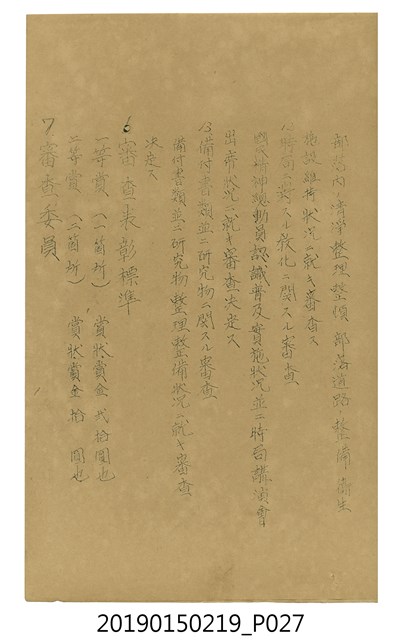 部落内ノ清淨整理整頓、部落道路整備、衛生
施設維持状況ニ就キ審査ス
12時局ニ對スル敎化ニ関スル審査
國民精神總動員認識普及實施狀況並ニ時局講演會
出席狀況ニ就キ審査決定ス
13備付書類並ニ研究物ニ関スル審査
備付書類並ニ研究物整理整備狀況ニ就キ審査
決定ス
6審査表彰標準
一等賞(一箇所) 賞狀賞金貳拾圓也
二等賞(二箇所) 賞狀賞金拾圓也
7審査委員
20190150219_P027